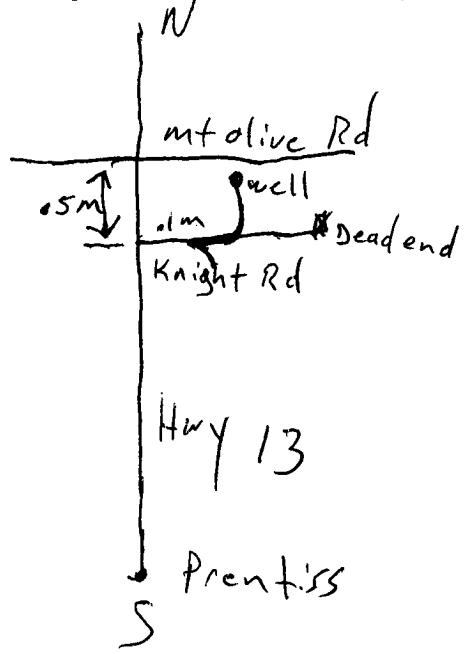 N
mt olive Rd
.5m
well
.1m
Dead end
Knight Rd
Hwy 13
Prentiss
S